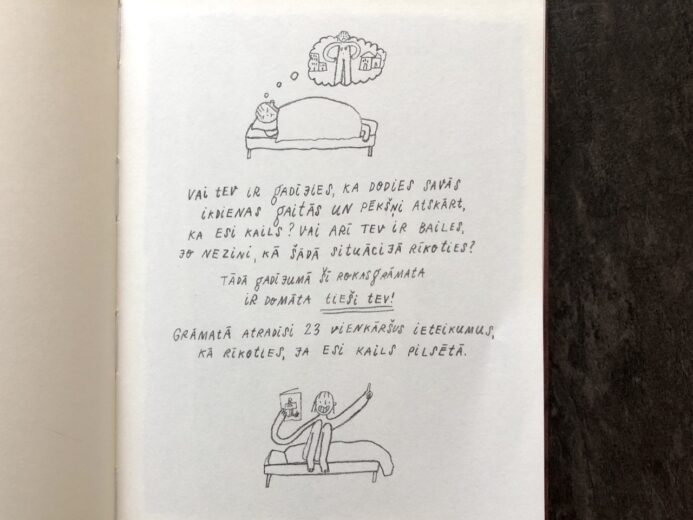 VAI TEV IR GADĪJIES, KA DODIES SAVĀS
IKDIENAS GAITĀS UN PĒKŠŅI ATSKĀRT,
KA ESI KAILS? VAI ARĪ TEV IR BAILES,
JO NEZINI, KĀ ŠĀDĀ SITUĀCIJĀ RĪKOTIES?
TĀDĀ GADĪJUMĀ ŠĪ ROKASGRĀMATA
IR DOMĀTA TIEŠI TEV!
GRĀMATĀ ATRADĪSI 23 VIENKĀRŠUS IETEIKUMUS,
KĀ RĪKOTIES, JA ESI KAILS PILSĒTĀ.